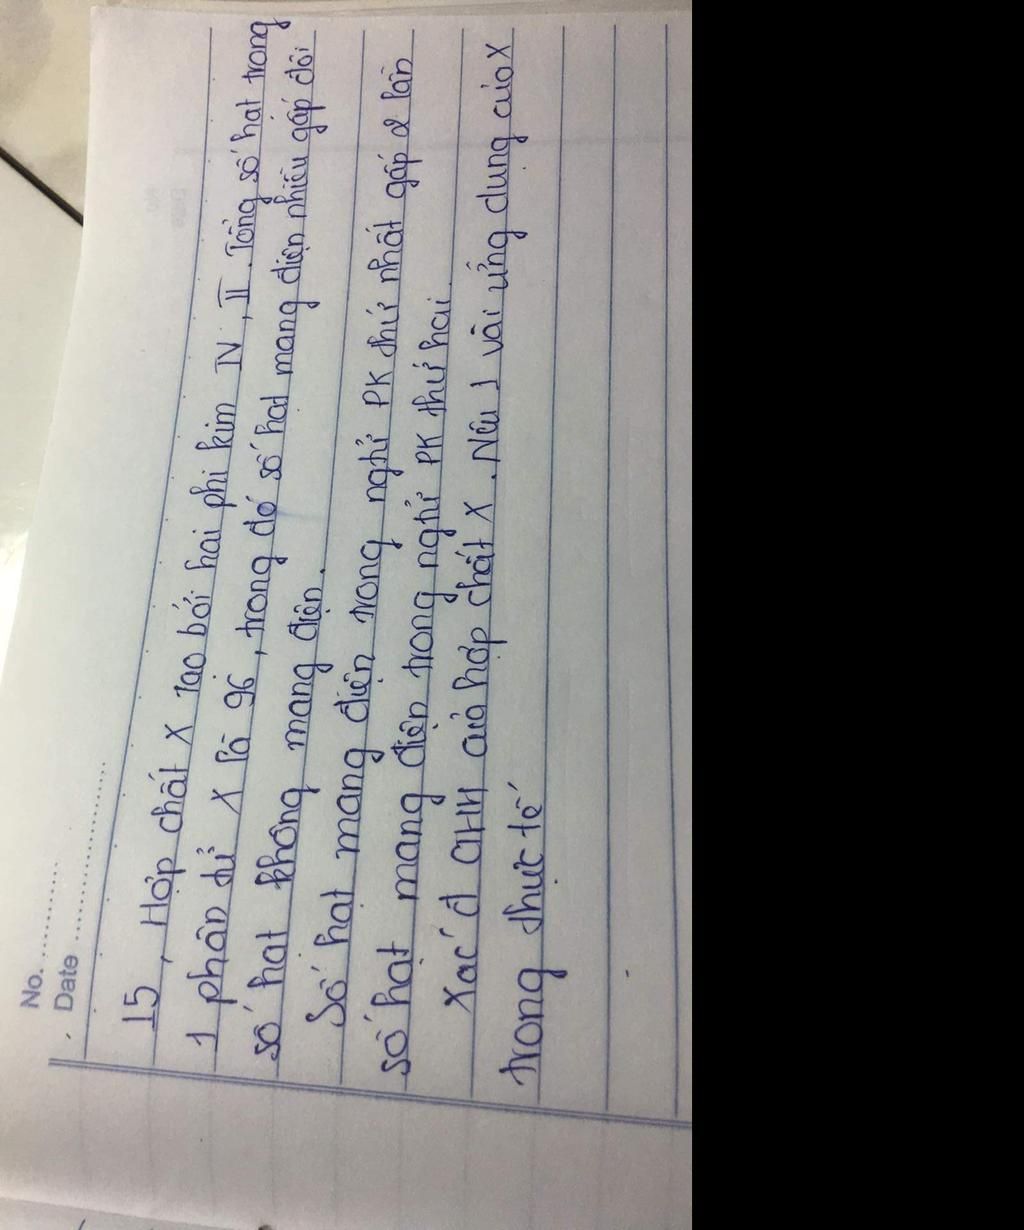 No. ............
Date ....................
15, Hợp chất X tạo bởi hai phi kim IV, II. Tổng số hạt trong
1 phân tử X là 96, trong đó số hạt mang điện nhiều gấp đôi
số hạt không mang điện.
Số hạt mang điện trong ngtử PK thứ nhất gấp 2 lần
số hạt mang điện trong ngtử PK thứ hai.
Xác đ CTHH của hợp chất X. Nêu 1 vài ứng dụng của X
trong thực tế